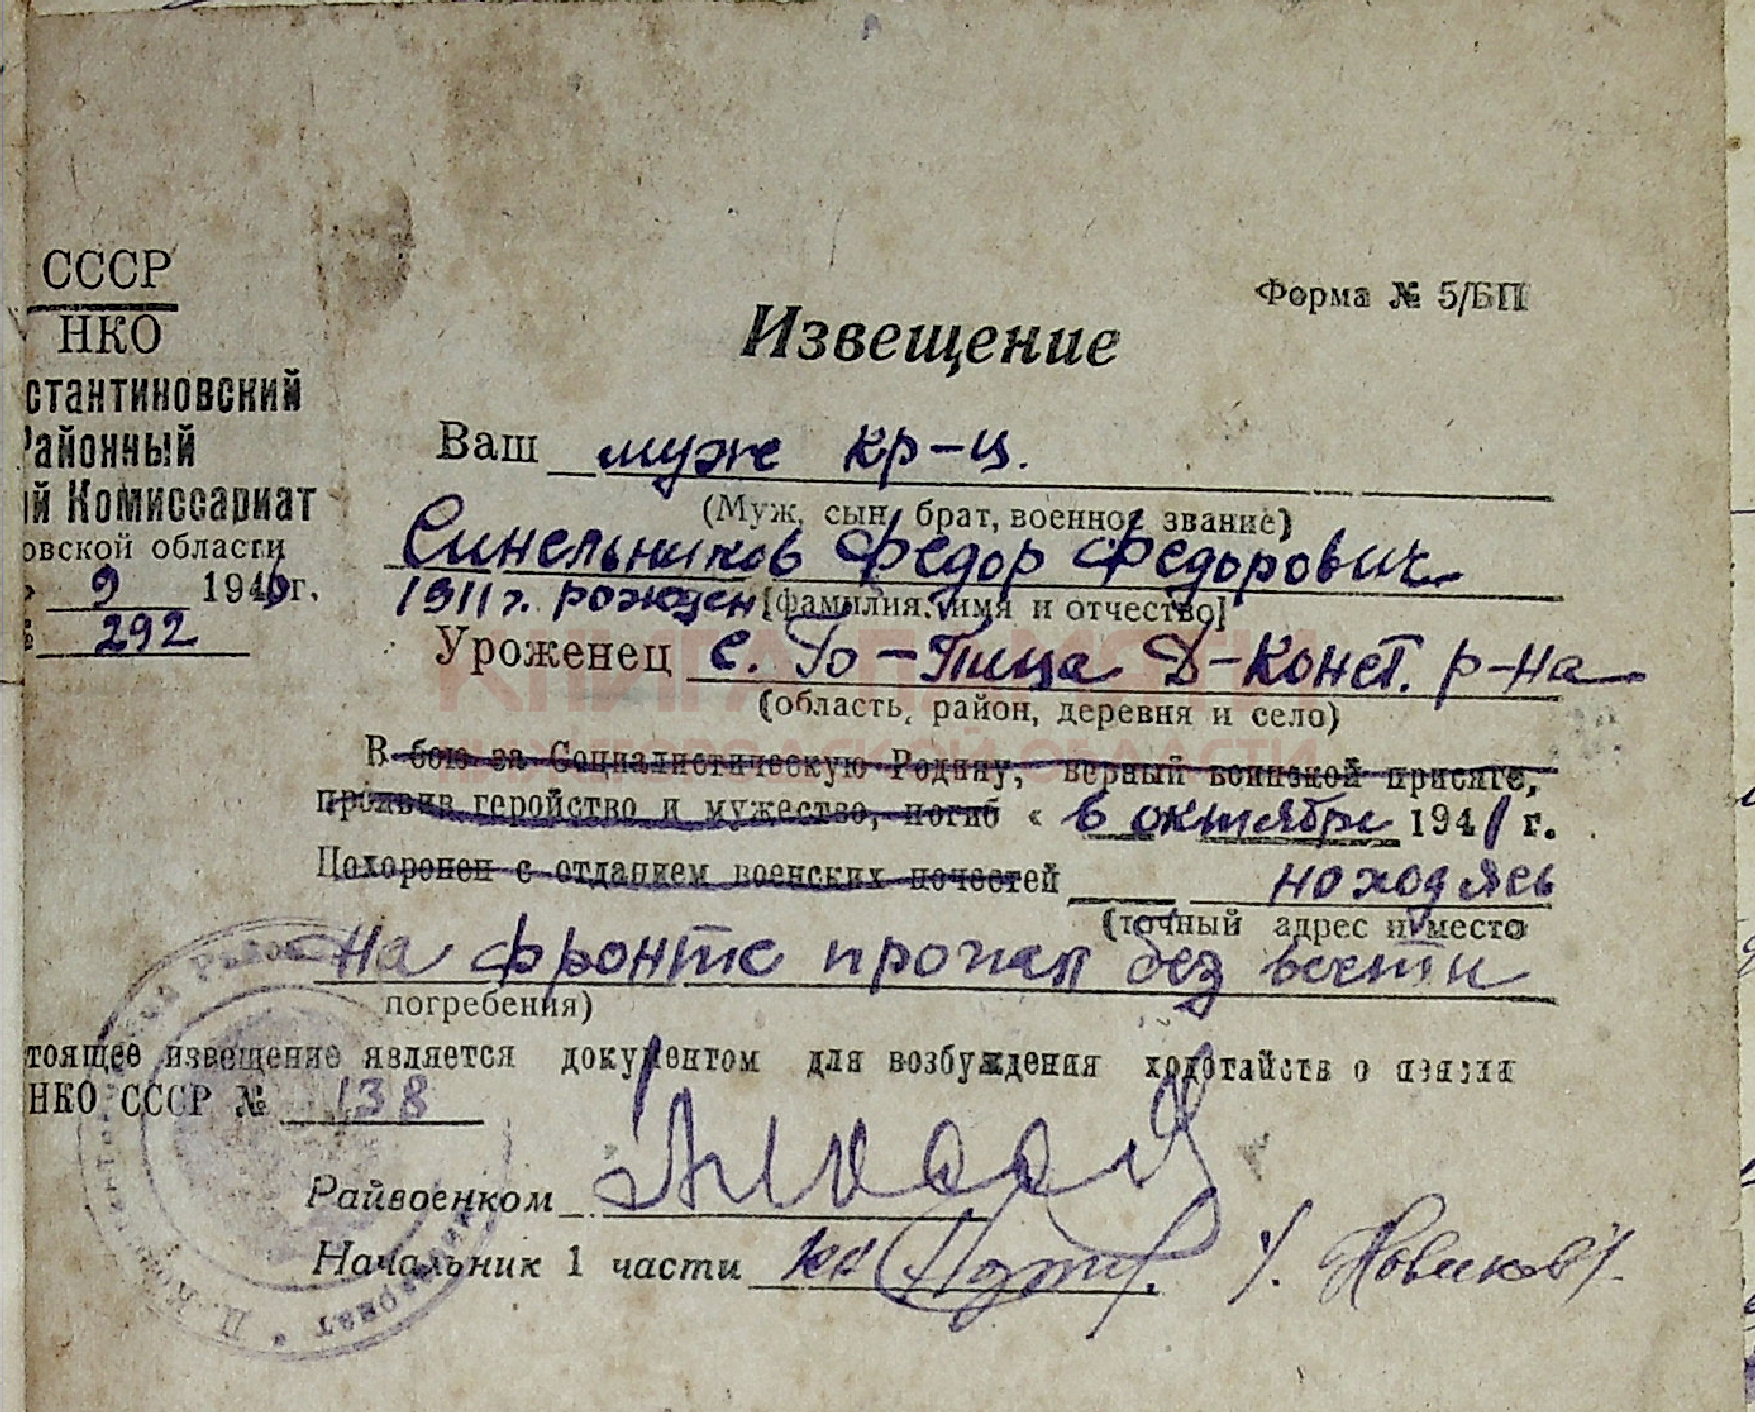 СССР
НКО
стантиновский
Районный
ий Комиссариат
овской области
9 194 г.
292
Форма № 5/БП
Извещение
Ваш муж кр-ц.
(Муж, сын, брат, военное звание)
Синельников Федор Федорович
1911 г. рожден [фамилия, имя и отчество]
Уроженец с. -Пица Д-Конст. р-на
(область, район, деревня и село)
КНИГА ПАМЯТИ
НИЖЕГОРОДСКОЙ ОБЛАСТИ
В бою за Социалистическую Родину, верный воинской присяге,
проявив геройство и мужество, погиб « в октябре 1941 г.
Похоронен с отданием военских почестей находясь
(точный адрес и место
на фронте пропал без вести
погребения)
тоящее извещение является документом для возбуждения ходотайств о пензии
НКО СССР № 138
Райвоенком
Начальник 1 части /. Новиков /.